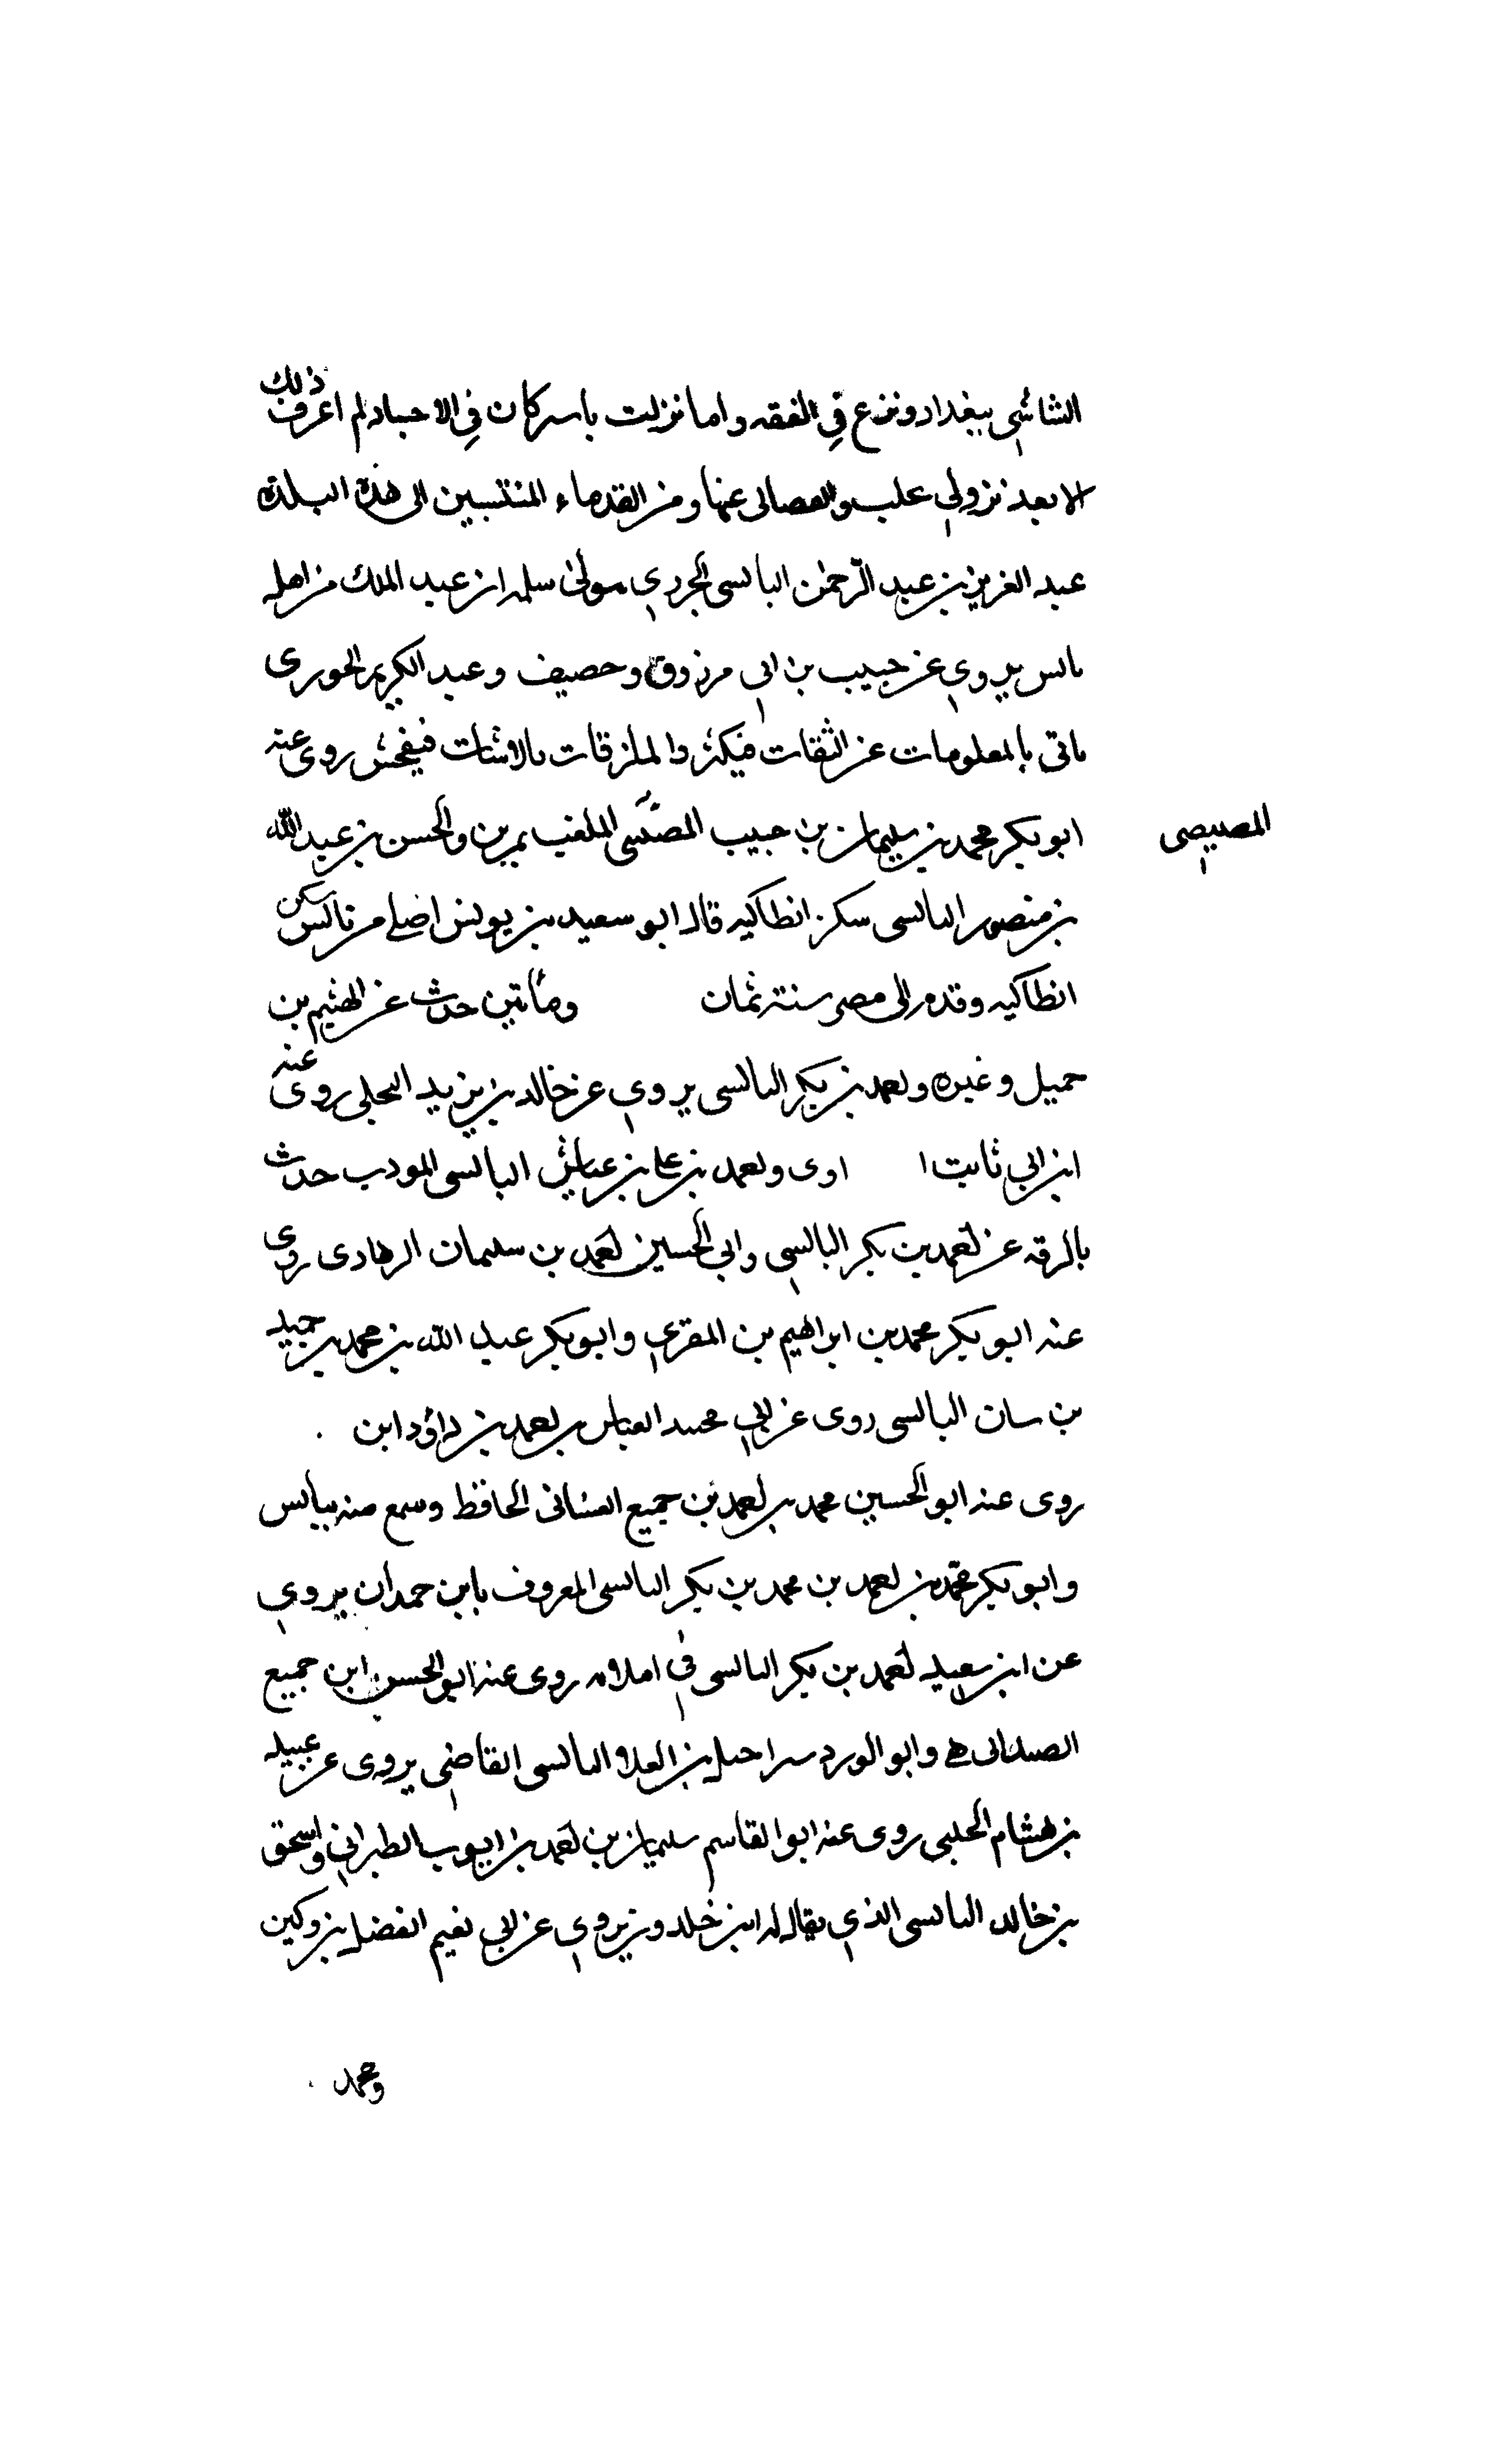 الشاشي ببغداد ونزع في الفقه واما نزلت باسركان في الاحباد لم اعرف ذلك
الا بعد نزولي علب وانفصالى عنها ومن القدماء المنتسبين الى هذه البلدة
عبد العزيز بن عبد الرحمن البالسى الجزري مولى سلمه ابن عبد الملك من اهل
بالس يروي عن حبيب بن ابي مرزوق وحصيف وعبد الكريم الحورى
ياتى بالمعلومات عن الثقات فيكثر والملزقات بالاثبات فيفحش روى عنه
ابو بكر محمد بن سليمان بن حبيب المصيصى الملقب بمرين والحسن بن عبد الله
المصيصى
بن منصور البالسى سكن انطاكيه قال ابو سعيد بن يونس اصله من بالس سكن
انطاكيه وقدم الى مصر سنة ثمان ومائتين حدث عن الهيثم بن
جميل وغيره واحمد بن بكر البالسى يروي عن خالد بن يزيد البجلى روى عنه
ابن ابي ثابت ا اوى واحمد بن على بن عياش البالسى المودب حدث
بالرقه عن احمد بن بكر البالسي وابي الحسين احمد بن سليمان الرهاوى روى
عنه ابو بكر محمد بن ابراهيم بن المقري وابو بكر عبد الله بن محمد بن حبيد
بن سان البالسى روى عن ابي محمد العباس بن احمد بن داؤد ابن
روى عنه ابو الحسين محمد بن احمد بن جميع الغسانى الحافظ وسمع منه ببالس
وابو بكر محمد بن احمد بن محمد بن بكر البالسى المعروف بابن حمدان يروي
عن ابن سعيد احمد بن بكر البالسى في املاه روى عنه ابو الحسن ابن جميع
الصيدانى هے وابو الورد سراحيل بن العلاء البالسى القاضي يروى عن عبيد
بن هشام الحلبى روى عنه ابو القاسم سليمان بن احمد بن ايوب الطبراني واسحق
بن خالد البالسى الذي يقال له ابن خلدون يروي عن ابي نعيم الفضل بن دكين
ومحمد